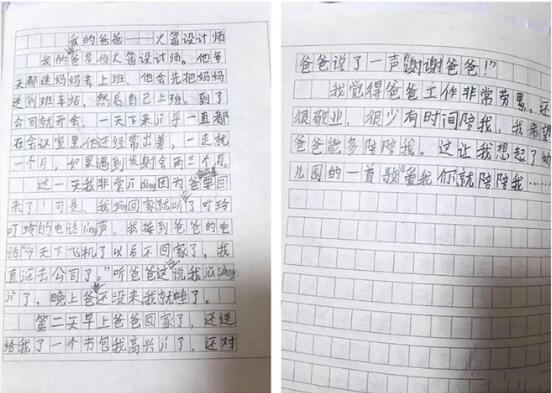 我的爸爸——火箭设计师
我的爸是位火箭设计师。他每
天都送妈妈去上班，他会先把妈妈
送到班车站，然后自己上班。到了
公司就开会。一天下来几乎一直都
在会议室里他还经常出差，一走就
一个月，如果遇到发射会两三个月。
这一天我非常 因为爸要回
来了！可是，我 回家就听了叮玲
叮玲的电话líng声。我接到爸爸的电
话“今天下飞机了以后不回家了，我
直 去公司了。”听爸爸这说我
jí了，晚上爸还没来我就睡了。
第二天早上爸爸回家了，还送
给我了一个书包我高兴jí了，还对
爸爸说了一声“谢谢爸爸！”
我觉得爸爸工作非常劳累，还
很敬业，很少有时间陪我，我希望
爸爸能多陪陪我。这让我想起了幼
儿园的一首歌“爱我你就陪陪我……